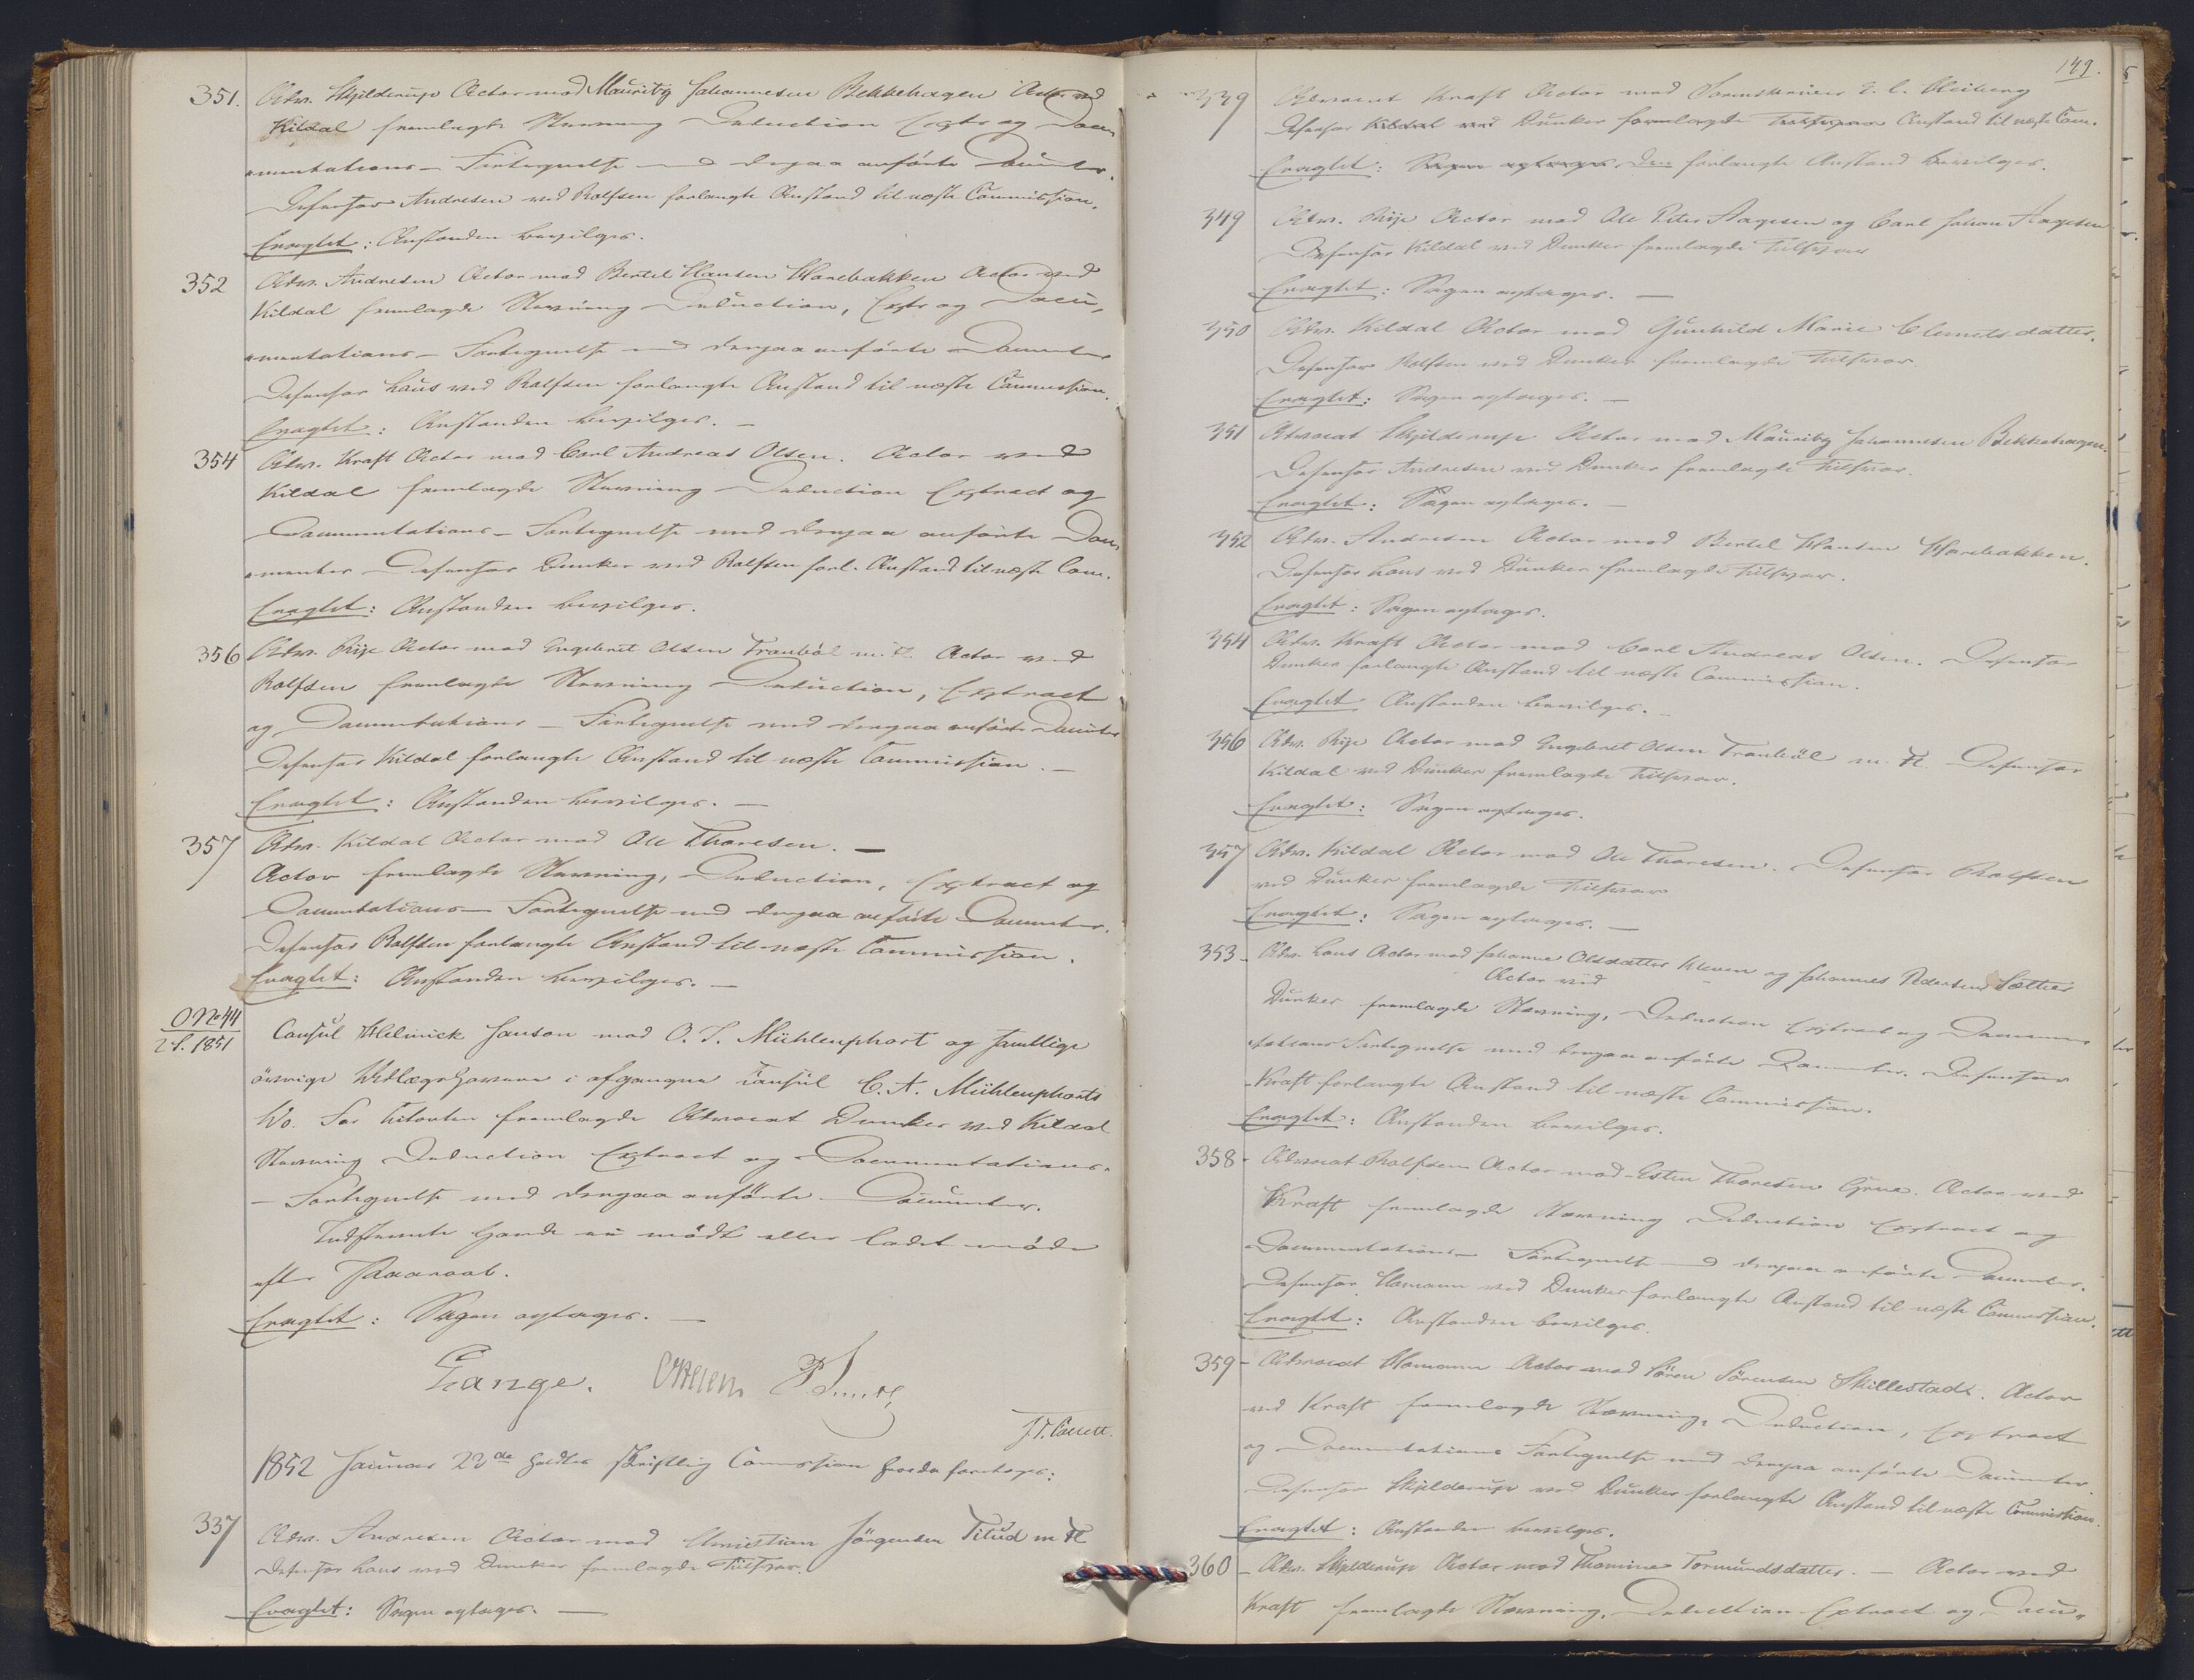 351. Adv. Skjelderup Actor mod Mauritz Johannesen Bekkehagen Actor ved
Kildal fremlagde Stevning Deduction Extr og Docu-
mentations-Fortegnelse med derpaa anförte Documenter.
Defensor Andresen ved Rolfsen forlangte Anstand til næste Commission.
Eragtet: Anstanden bevilges.
352 Adv. Andresen Actor mod Bertel Hansen Harebakken Actor ved
Kildal fremlagde Stevning Deduction, Extr og Docu-
mentations-Fortegnelse med derpaa anförte Documenter
Defensor Haus ved Rolfsen forlangte Anstand til næste Commission.
Eragtet: Anstanden bevilges. —
354 Adv. Kraft Actor mod Carl Andreas Olsen. Actor ved
Kildal fremlagde Stevning Deduction Extract og
Documentations-Fortegnelse med derpaa anförte Docu-
menter Defensor Dunker ved Rolfsen forl. Anstand til næste Com.
Eragtet: Anstanden bevilges.
356 Adv. Rije Actor mod Engebret Olsen Tranböl m. Fl. Actor ved
Rolfsen fremlagde Stevning Deduction, Extract
og Documentations-Fortegnelse med derpaa anförte Documenter
Defensor Kildal forlangte Anstand til næste Commission. —
Eragtet: Anstanden bevilges. —
357 Adv. Kildal Actor mod Ole Thoresen. —
Actor fremlagde Stevning, Deduction, Extract og
Documentations-Fortegnelse med derpaa anförte Documenter.
Defensor Rolfsen forlangte Anstand til næste Commission.
Eragtet: Anstanden bevilges. —
O No 44
2 S. 1851
Consul Helmick Janson mod O. J. Mühlenphort og samtlige
övrige Vedlagshavere i afgangne Consul C. A. Mühlenphorts
Bo. For Citanten fremlagde Advocat Dunker ved Kildal
Stevning Deduction Extract og Documentations-
-Fortegnelse med derpaa anförte Documenter.
Indstevnte havde ei mödt eller ladet möde
efter Paaraab.
Eragtet: Sagen optages. —
Lange.
J. C. Collett.
1852 Januar 22de holdtes skriftlig Commission hvorda foretoges:
337 Adv. Andresen Actor mod Christian Jörgensen Titud m Fl
Defensor Haus ved Dunker fremlagde Tilsvar.
Eragtet: Sagen optages. —
149.
339 Advocat Kraft Actor mod Sorenskriver E. C. Heiberg
Defensor Kildal ved Dunker forlangte Tilsvar Anstand til næste Com.
Eragtet: Sagen optages. Den forlangte Anstand bevilges.
349 Adv. Rije Actor mod Ole Peter Aagesen og Carl Johan Aagesen
Defensor Kildal ved Dunker fremlagde Tilsvar
Eragtet: Sagen optages. —
350 Adv. Kildal Actor mod Gunhild Marie Clemetsdatter.
Defensor Rolfsen ved Dunker fremlagde Tilsvar
Eragtet: Sagen optages. —
351 Advocat Skjelderup Actor mod Mauritz Johannesen Bekkehagen.
Defensor Andresen ved Dunker fremlagde Tilsvar.
Eragtet: Sagen optages. —
352 Adv. Andresen Actor mod Bertel Hansen Harebakken.
Defensor Haus ved Dunker fremlagde Tilsvar.
Eragtet: Sagen optages.
354 Adv. Kraft Actor mod Carl Andreas Olsen. Defensor
Dunker forlangte Anstand til næste Commission.
Eragtet Anstanden bevilges. —
356 Adv. Rije Actor mod Engebret Olsen Tranböl m. Fl. Defensor
Kildal ved Dunker fremlagde Tilsvar.
Eragtet: Sagen optages.
357 Adv. Kildal Actor mod Ole Thoresen. Defensor Rolfsen
ved Dunker fremlagde Tilsvar
Eragtet: Sagen optages. —
353 - Adv. Haus Actor mod Johanne Olsdatter Kleven og Johannes Pedersen Sætter
Actor ved
Dunker fremlagde Stevning, Deduction Extract og Documen-
tations Fortegnelse med derpaa anförte Documenter. Defensor
Kraft forlangte Anstand til næste Commission.
Eragtet: Anstanden bevilges.
358 - Advocat Rolfsen Actor mod Esten Thoresen Grue. Actor ved
Kraft fremlagde Stevning Deduction Extract og
Documentations-Fortegnelse med derpaa anförte Documenter.
Defensor Homann ved Dunker forlangte Anstand til næste Commission.
Eragtet: Anstanden bevilges.
359 - Advocat Homann Actor mod Sören Sörensen Skillestad. Actor
ved Kraft fremlagde Stevning, Deduction, Extract
og Documentations Fortegnelse med derpaa anförte Documenter.
Defensor Skjelderup ved Dunker forlangte Anstand til næste Commission.
Eragtet: Anstanden bevilges.
360 - Adv. Skjelderup Actor mod Thomine Tormundsdatter. — Actor ved
Kraft fremlagde Stevning, Deduction Extract og Docu-